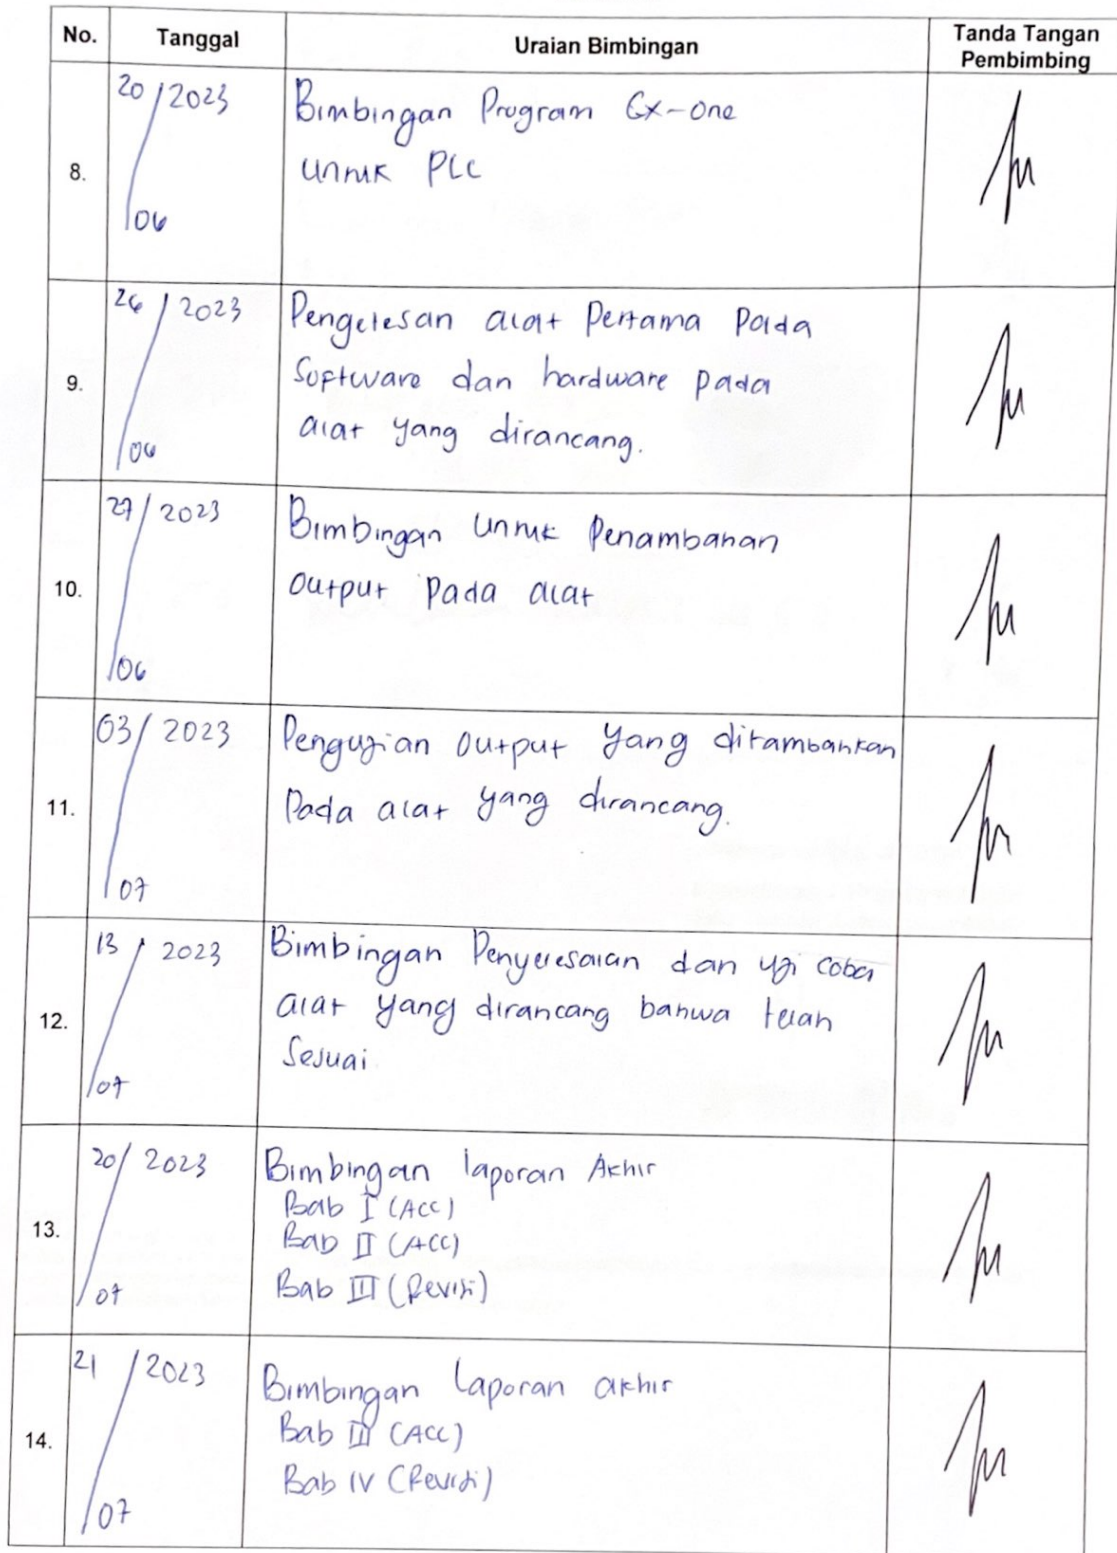 No. Tanggal Uraian Bimbingan Tanda Tangan
Pembimbing
8. 20/06/2023 Bimbingan Program Cx-One
untuk PLC
9. 26/06/2023 Pengetesan alat Pertama Pada
Software dan hardware pada
alat yang dirancang.
10. 27/06/2023 Bimbingan untuk Penambahan
output Pada alat
11. 03/07/2023 Pengujian output yang ditambahkan
Pada alat yang dirancang.
12. 13/07/2023 Bimbingan Penyelesaian dan uji coba
alat yang dirancang bahwa telah
Sesuai
13. 20/07/2023 Bimbingan laporan Akhir
Bab I (Acc)
Bab II (ACC)
Bab III (Revisi)
14. 21/07/2023 Bimbingan Laporan akhir
Bab III (ACC)
Bab IV (Revisi)